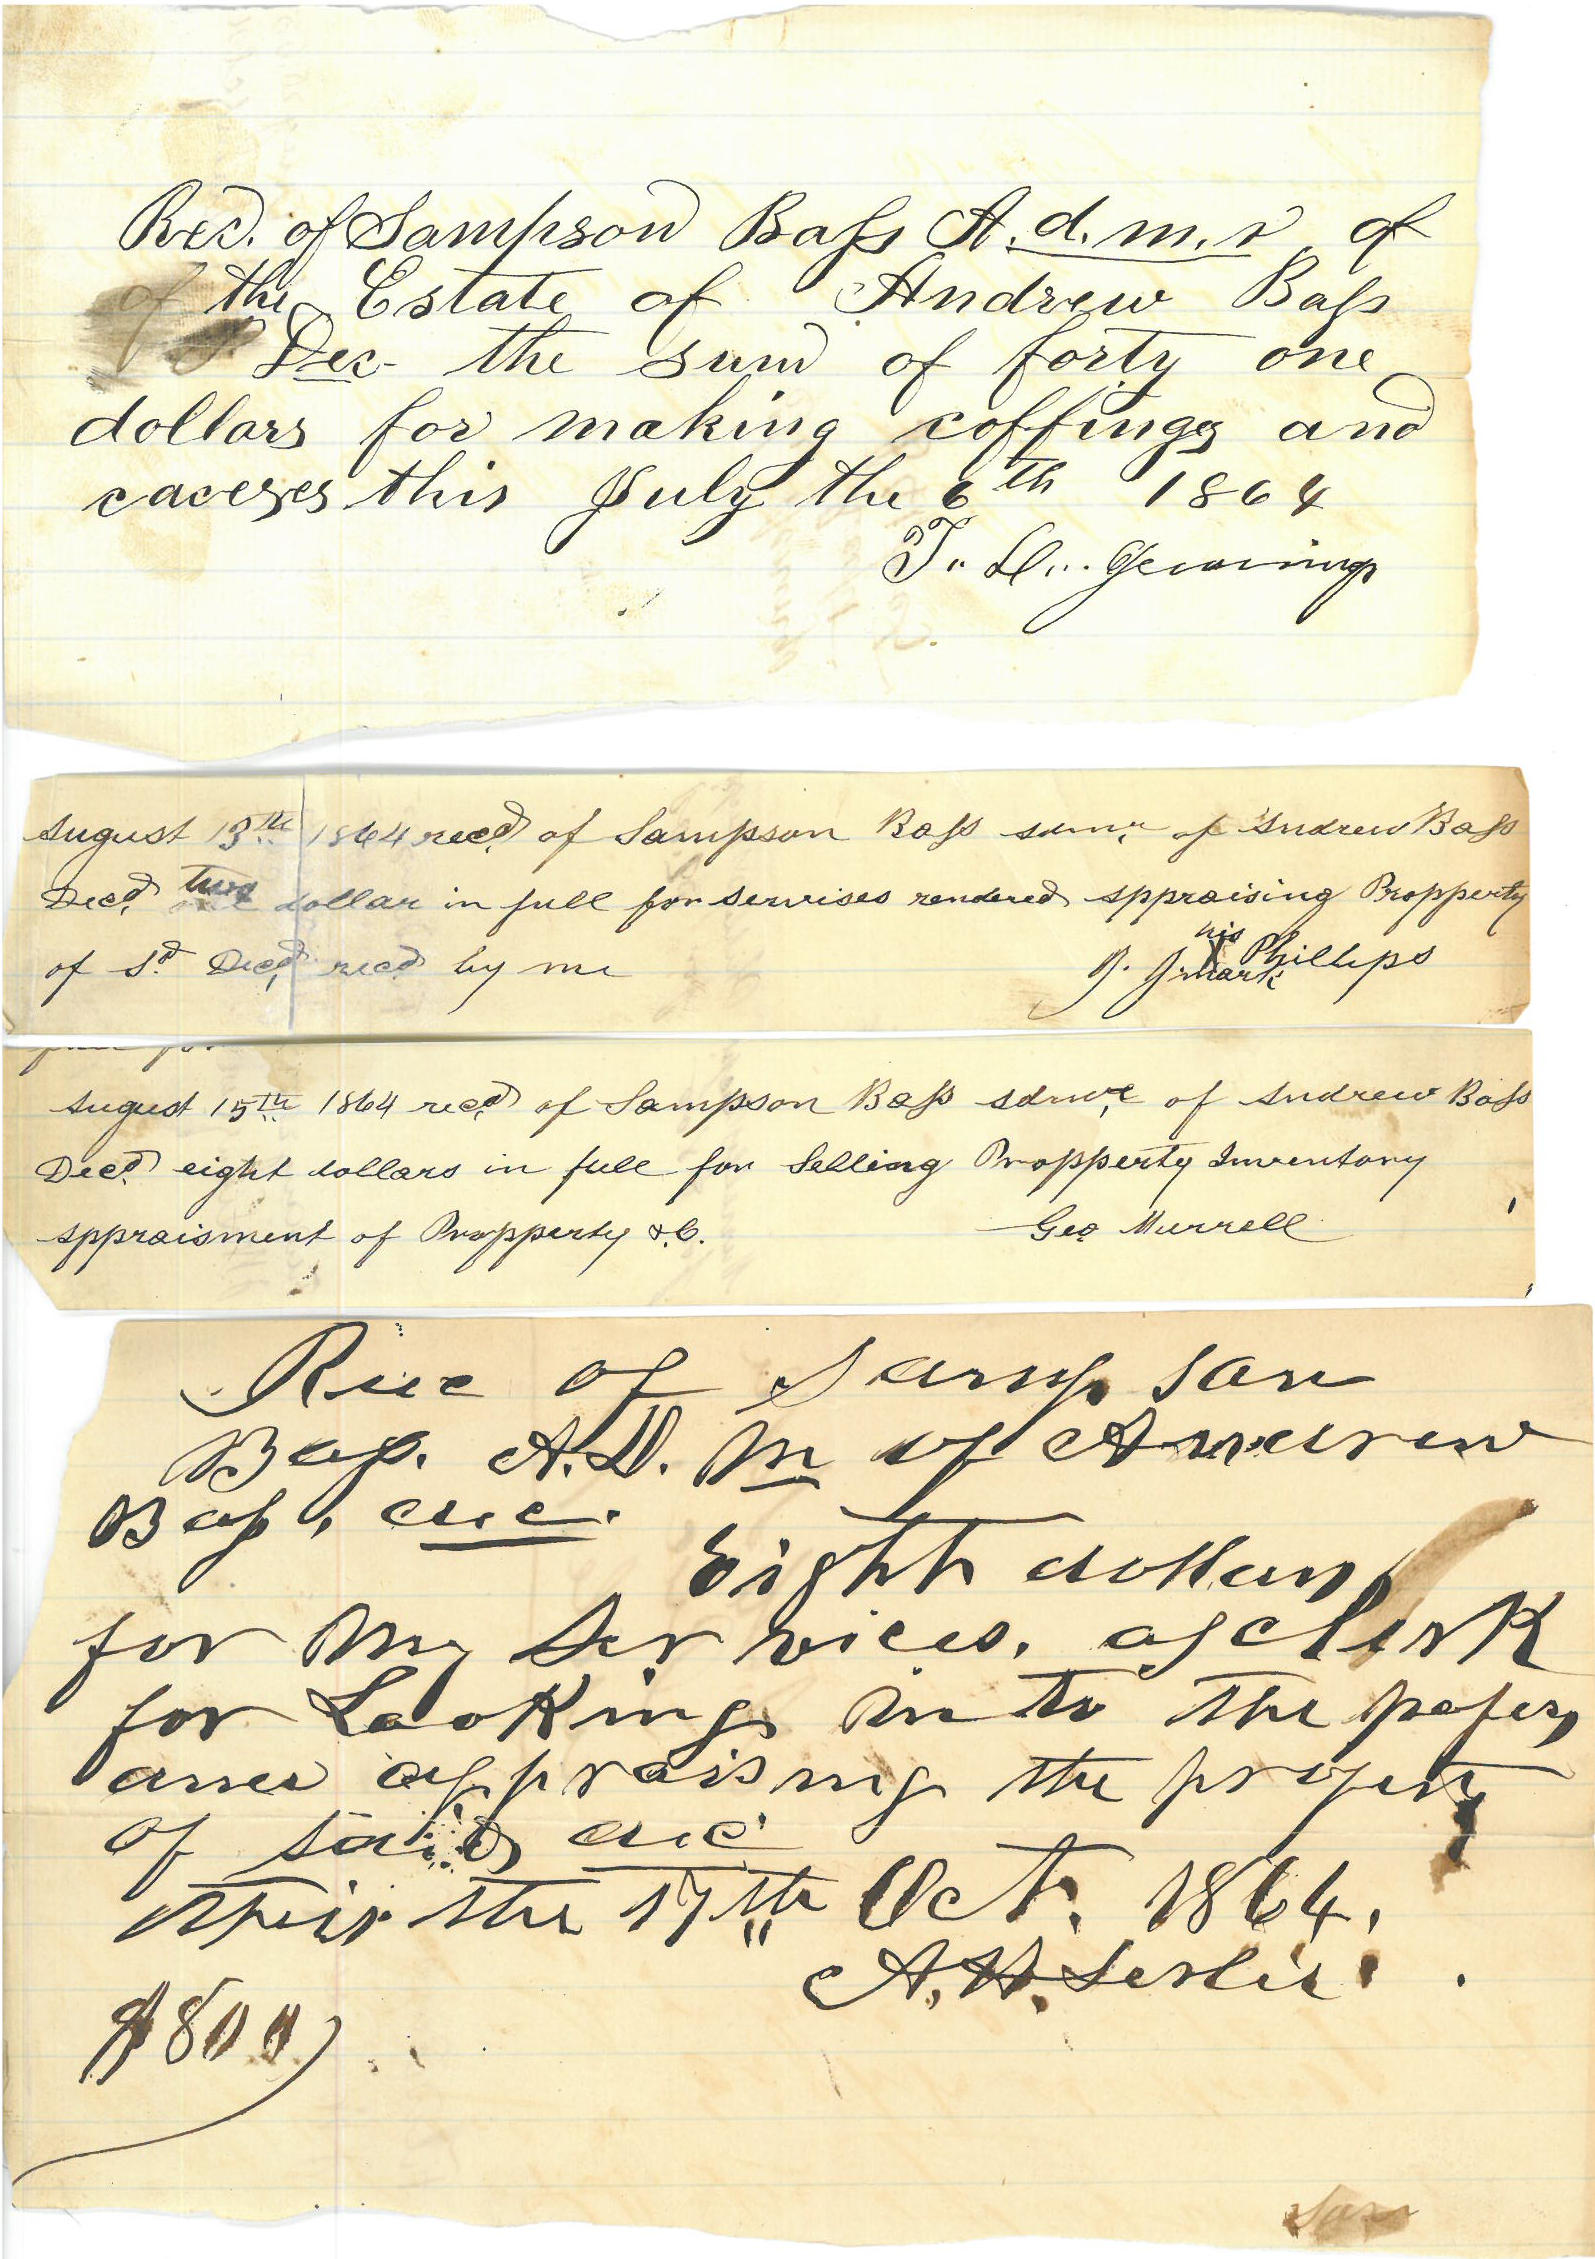 Recd. of Sampson Bass A.d.m.r. of
of the Estate of Andrew Bass
Dec- the sum of forty one
dollars for making coffings and
caceses this July the 6th 1864
T. L. Jennings
August 13th 1864 recd of Sampson Bass admr. of Andrew Bass
Decd. two dollar in full for servises rendered appraising Propperty
of Sd Decd, recd by me
his
J. J. X Phillips
mark
full for
August 15th 1864 recd of Sampson Bass admr. of Andrew Bass
Decd. eight dollars in full for Selling Propperty Inventory
appraisment of Propperty &.C.
Geo Murrell
Recc of Sampson
Bass. A.D.M of Andrew
Bass, dec.
Eight dollars
for My Services. as clerk
for Looking in to the papers
and appraising the property
of said dec
this the 17th Oct. 1864.
A. H. Leslie.
$800